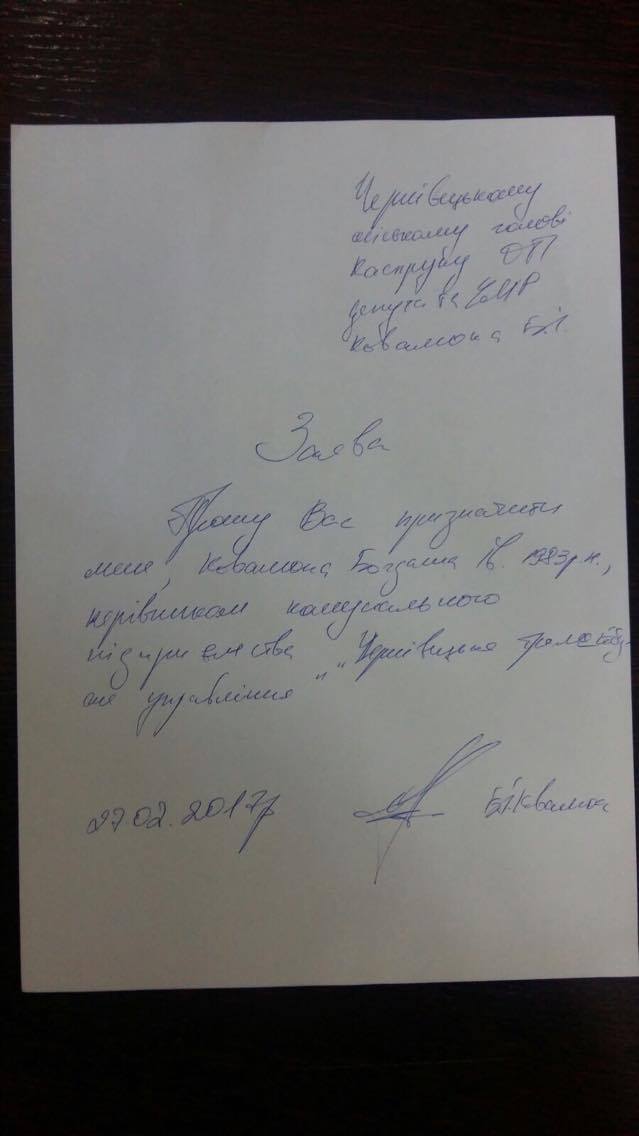 Чернівецькому
міському голові
Каспруку ОП
депутата ЧМР
Ковалюка Б.І.
Заява
Прошу Вас призначити
мене, Ковалюка Богдана Ів. 1983 р.н.,
керівником комунального
підприємства "Чернівецьке тролейбус-
не управління"
27.02.2017р Б.І.Ковалюк